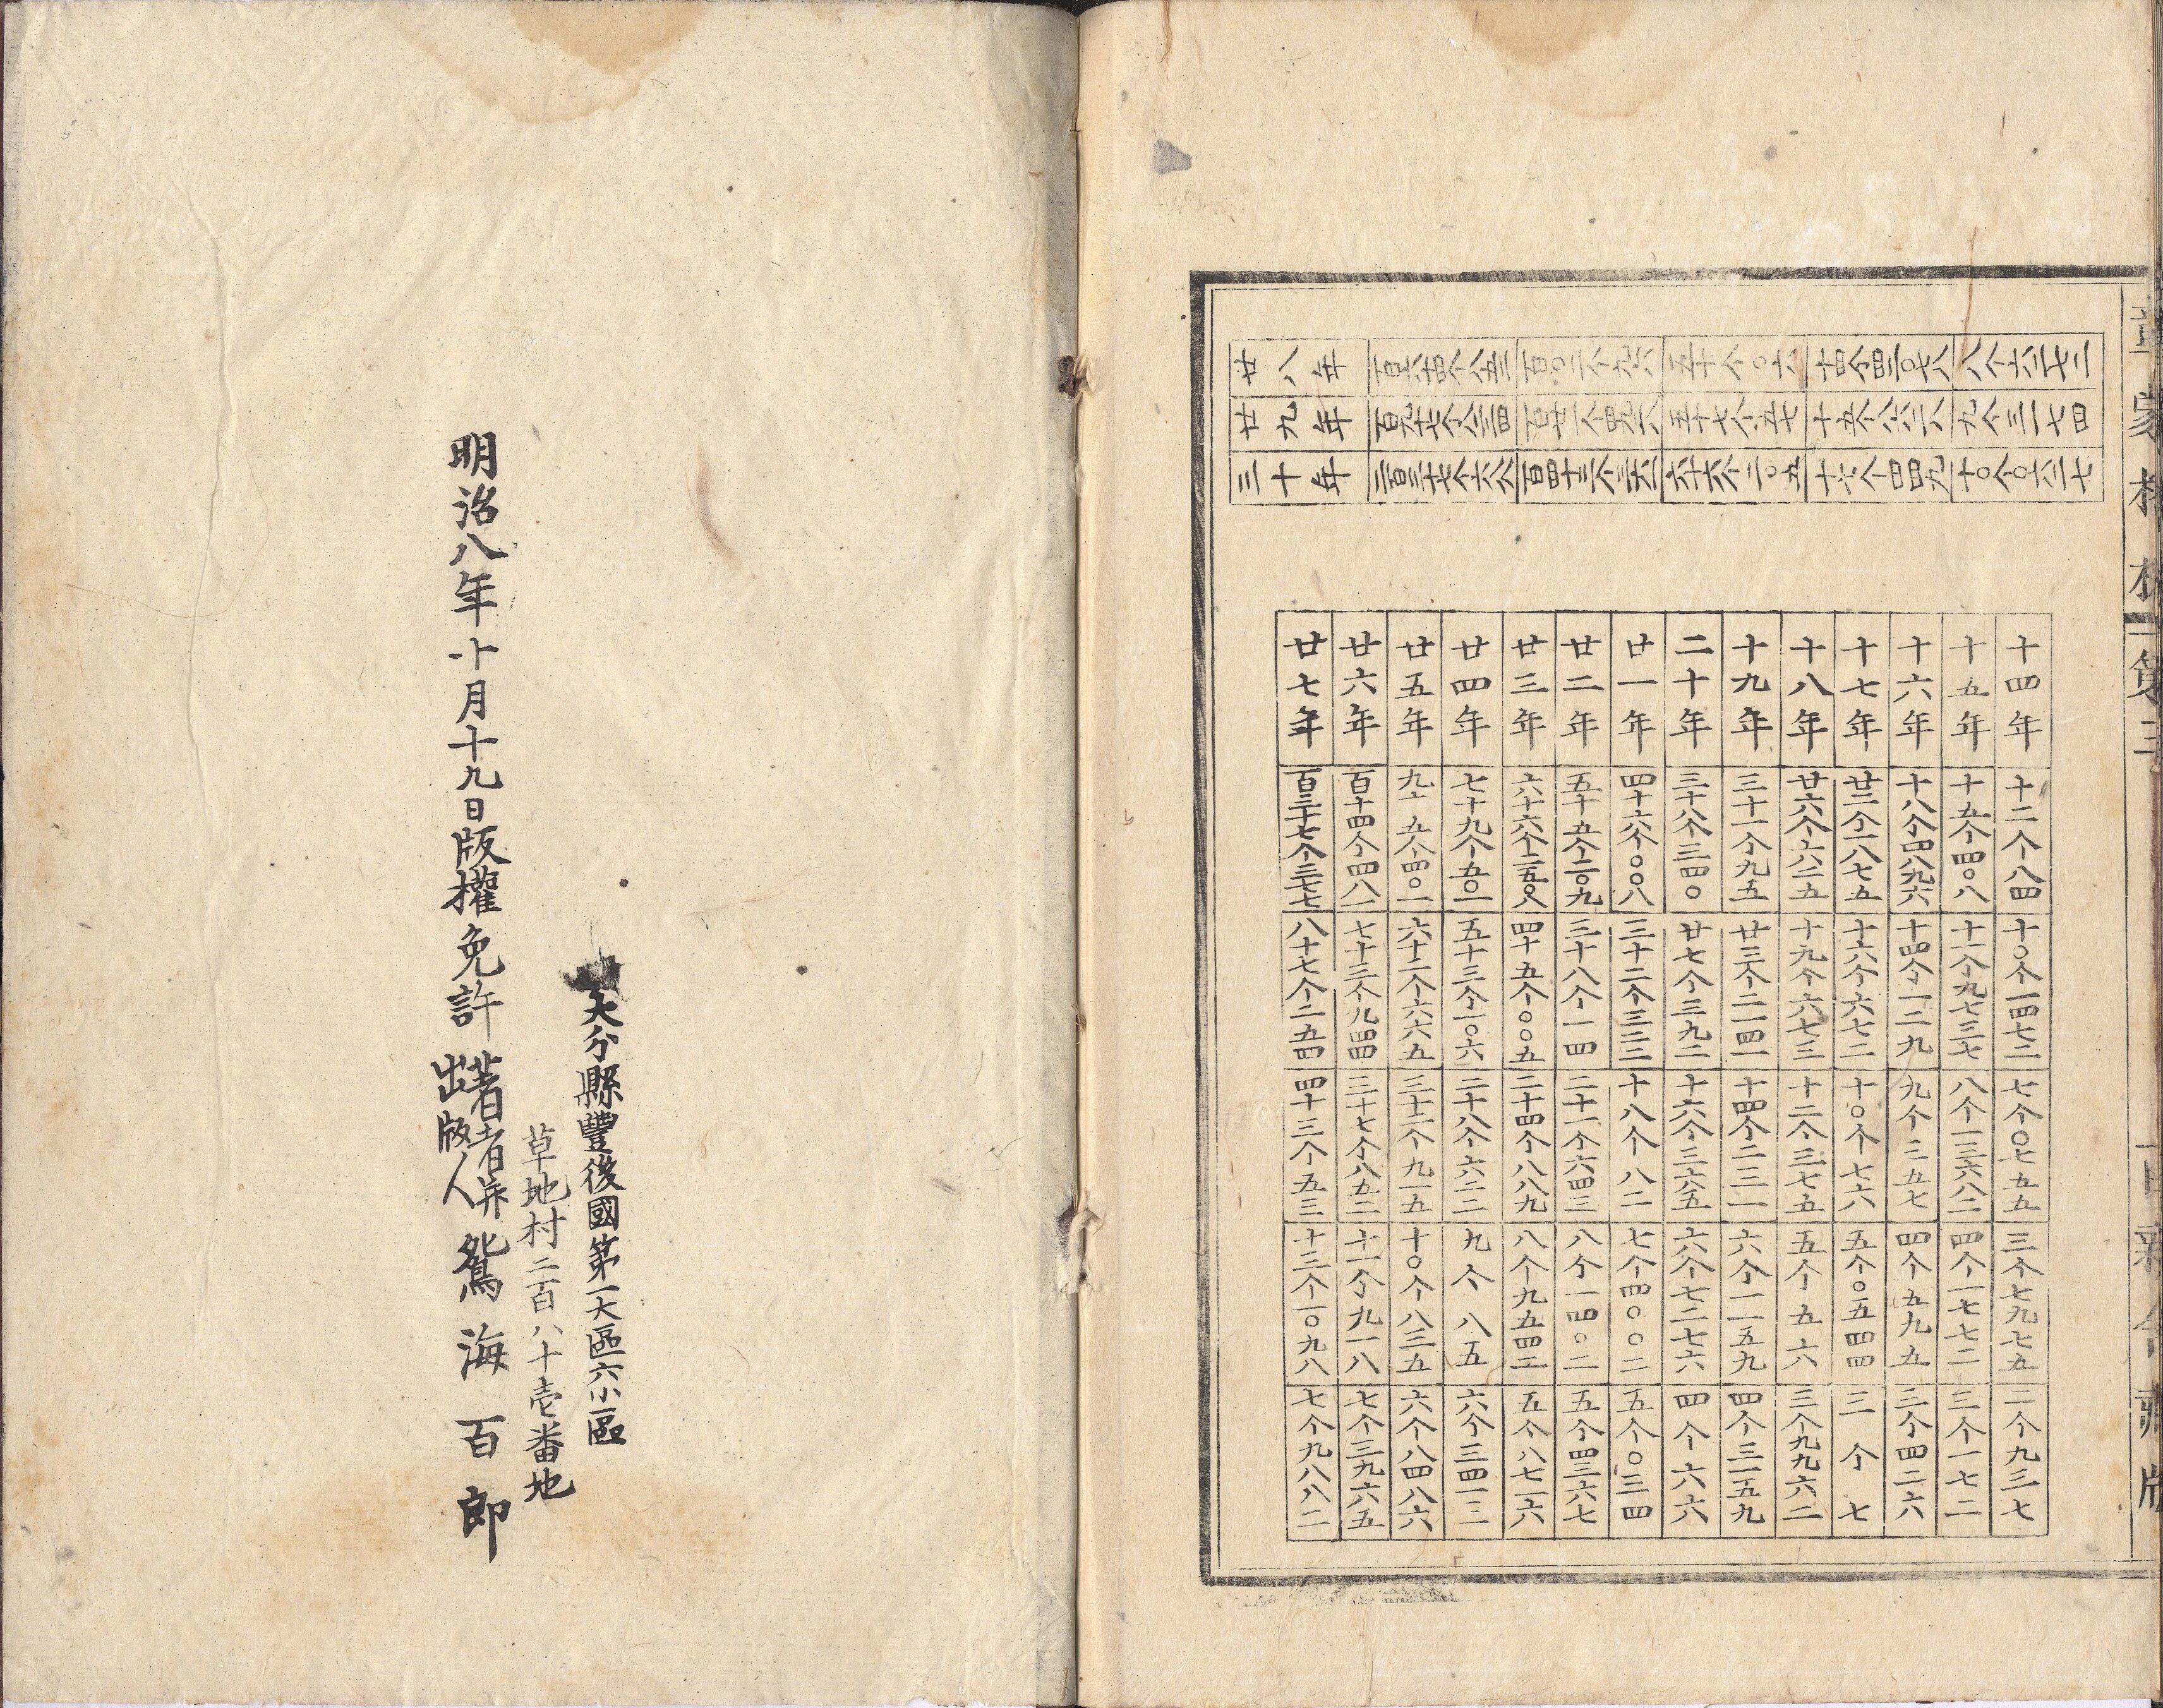 廿八年 百六十四个八五三 百〇二个九六 五十个〇六 八个六二七三
廿九年 五十七个五七 九个三一七四
三十年 六十六个二〇五 十七个四四九 十〇个〇六二七
十四年 十二个八四 十〇个一四七二 七个〇七五五 三个七九七五 二个九三七
十五年 十五个四〇八 十一个九七三七 八个一三六八二 四个一七七二 三个一七二
十六年 十八个四八九六 十四个一二九 九个三五七 四个五九五 三个四二六
十七年 廿二个一八七五 十六个六七二 十〇个七六 五个〇五四四 三个七
十八年 廿六个六二五 十九个六七三 十二个三七五 五个五六 三个九九六二
十九年 三十一个九五 廿三个二一四一 十四个二三一 六个一一五九 四个三一五九
二十年 三十八个三四〇 廿七个三九二 十六个三六六五 六个七二七六 四个六六
廿一年 四十六个〇〇八 三十二个三二三 十八个八二 七个四〇〇二 五个〇三四
廿二年 五十五个二〇九 三十八个一四 二十一个六四三 八个一四〇二 五个四三六七
廿三年 六十六个二五〇八 四十五个〇〇五 二十四个八八九 八个九五四二 五个八七一六
廿四年 七十九个五〇一 五十三个一〇六 二十八个六二二 九个八五 六个三四一三
廿五年 九十五个四〇一 六十二个六六五 三十二个九一五 十〇个八三五 六个八四八六
廿六年 百十四个四八一 七十三个八四四 三十七个八五二 十一个九一八 七个三九六五
廿七年 百三十七个三七七 八十七个二五四 四十三个五三 十三个一〇九八 七个九八八二
大分縣豐後國第一大區六小區
草地村二百八十壱番地
明治八年十月十九日版權免許 著者并出版人 鴛海百郎